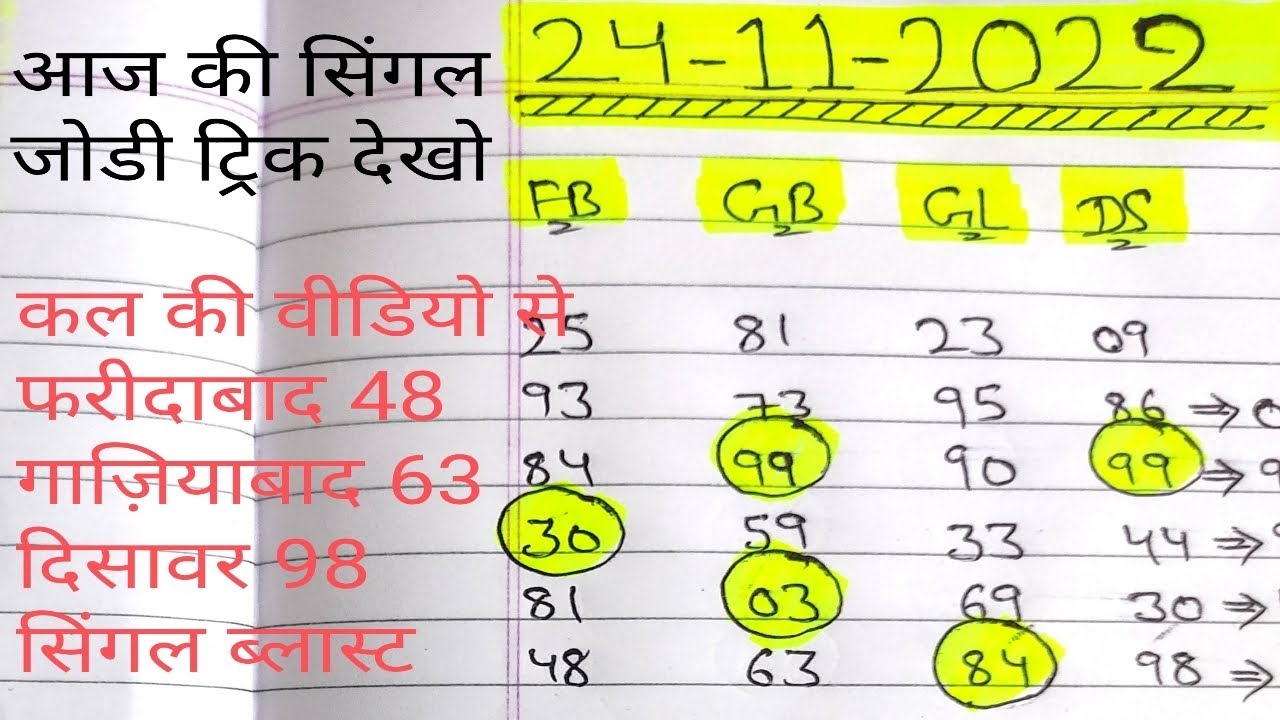 आज की सिंगल
जोडी ट्रिक देखो
24-11-2022
FB GB GL DS
कल की वीडियो से
फरीदाबाद 48
गाज़ियाबाद 63
दिसावर 98
सिंगल ब्लास्ट
25 81 23 09
93 73 95 86 ⇒
84 99 90 99 ⇒ 9
30 59 33 44 ⇒
81 03 69 30 ⇒
48 63 84 98 ⇒